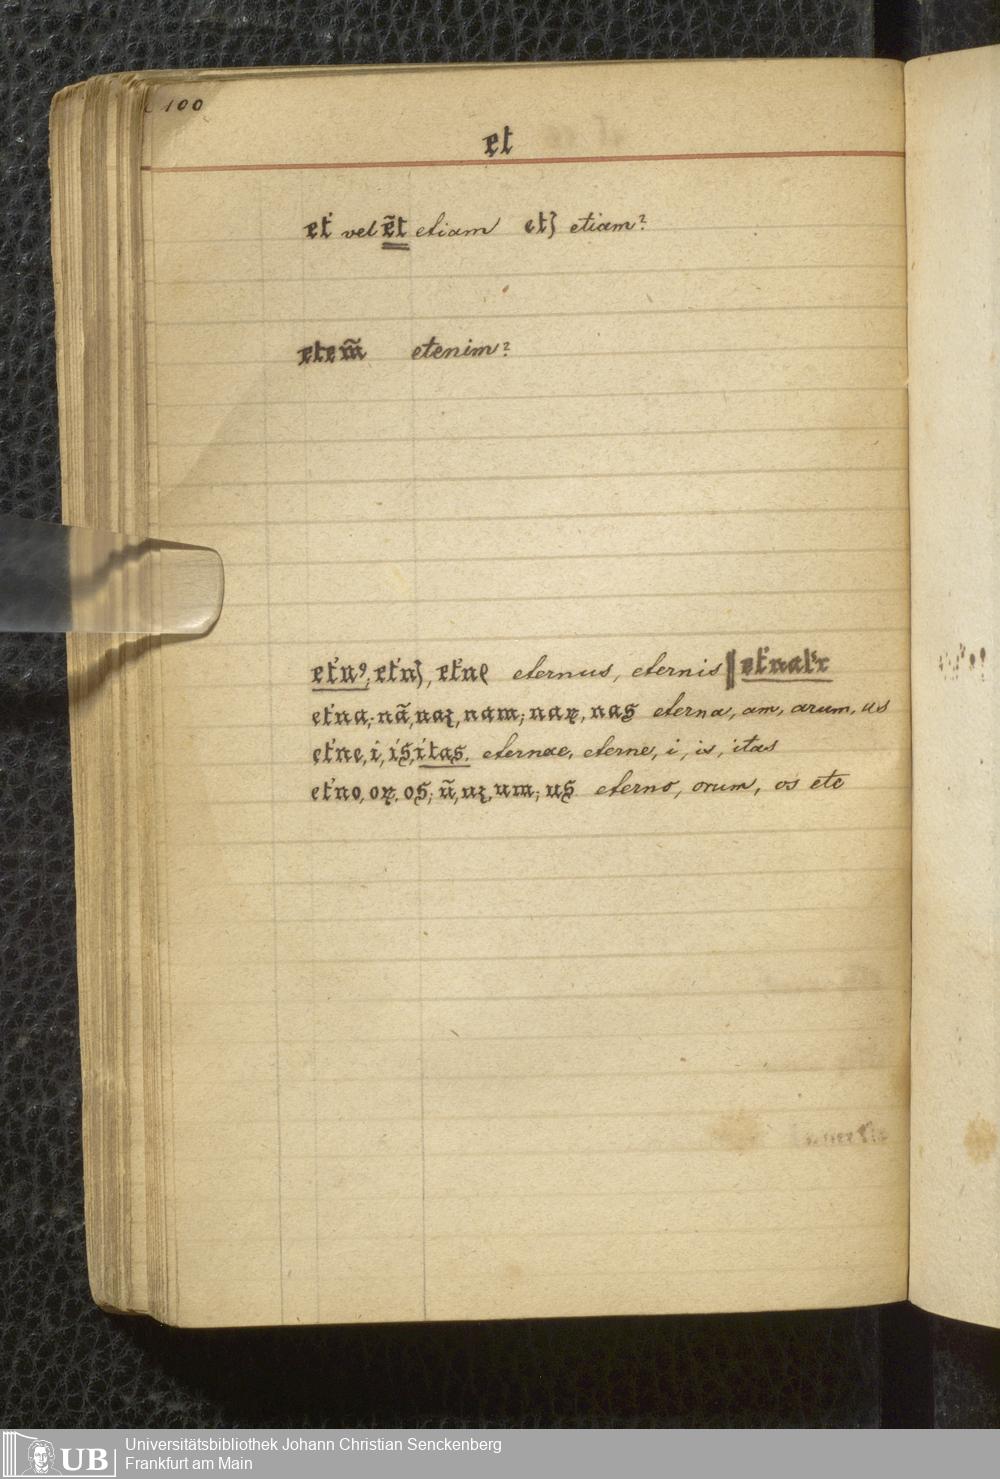 100
et
et᾽ vel e̅t etiam etꝫ etiam?
etem̃ etenim?
et᾽nꝰ, et᾽nꝫ, et᾽ne eternus, eternis ‖ et᾽nal᾽r
et᾽na, nã, naȝ, nam, naꝝ, nas eterna, am, arum, as
et᾽ne, i, is, itas. eternae, eterne, i, is, itas
et᾽no, oꝝ, os, ũ, uȝ, um, us eterno, orum, os etc
UB
Universitätsbibliothek Johann Christian Senckenberg
Frankfurt am Main